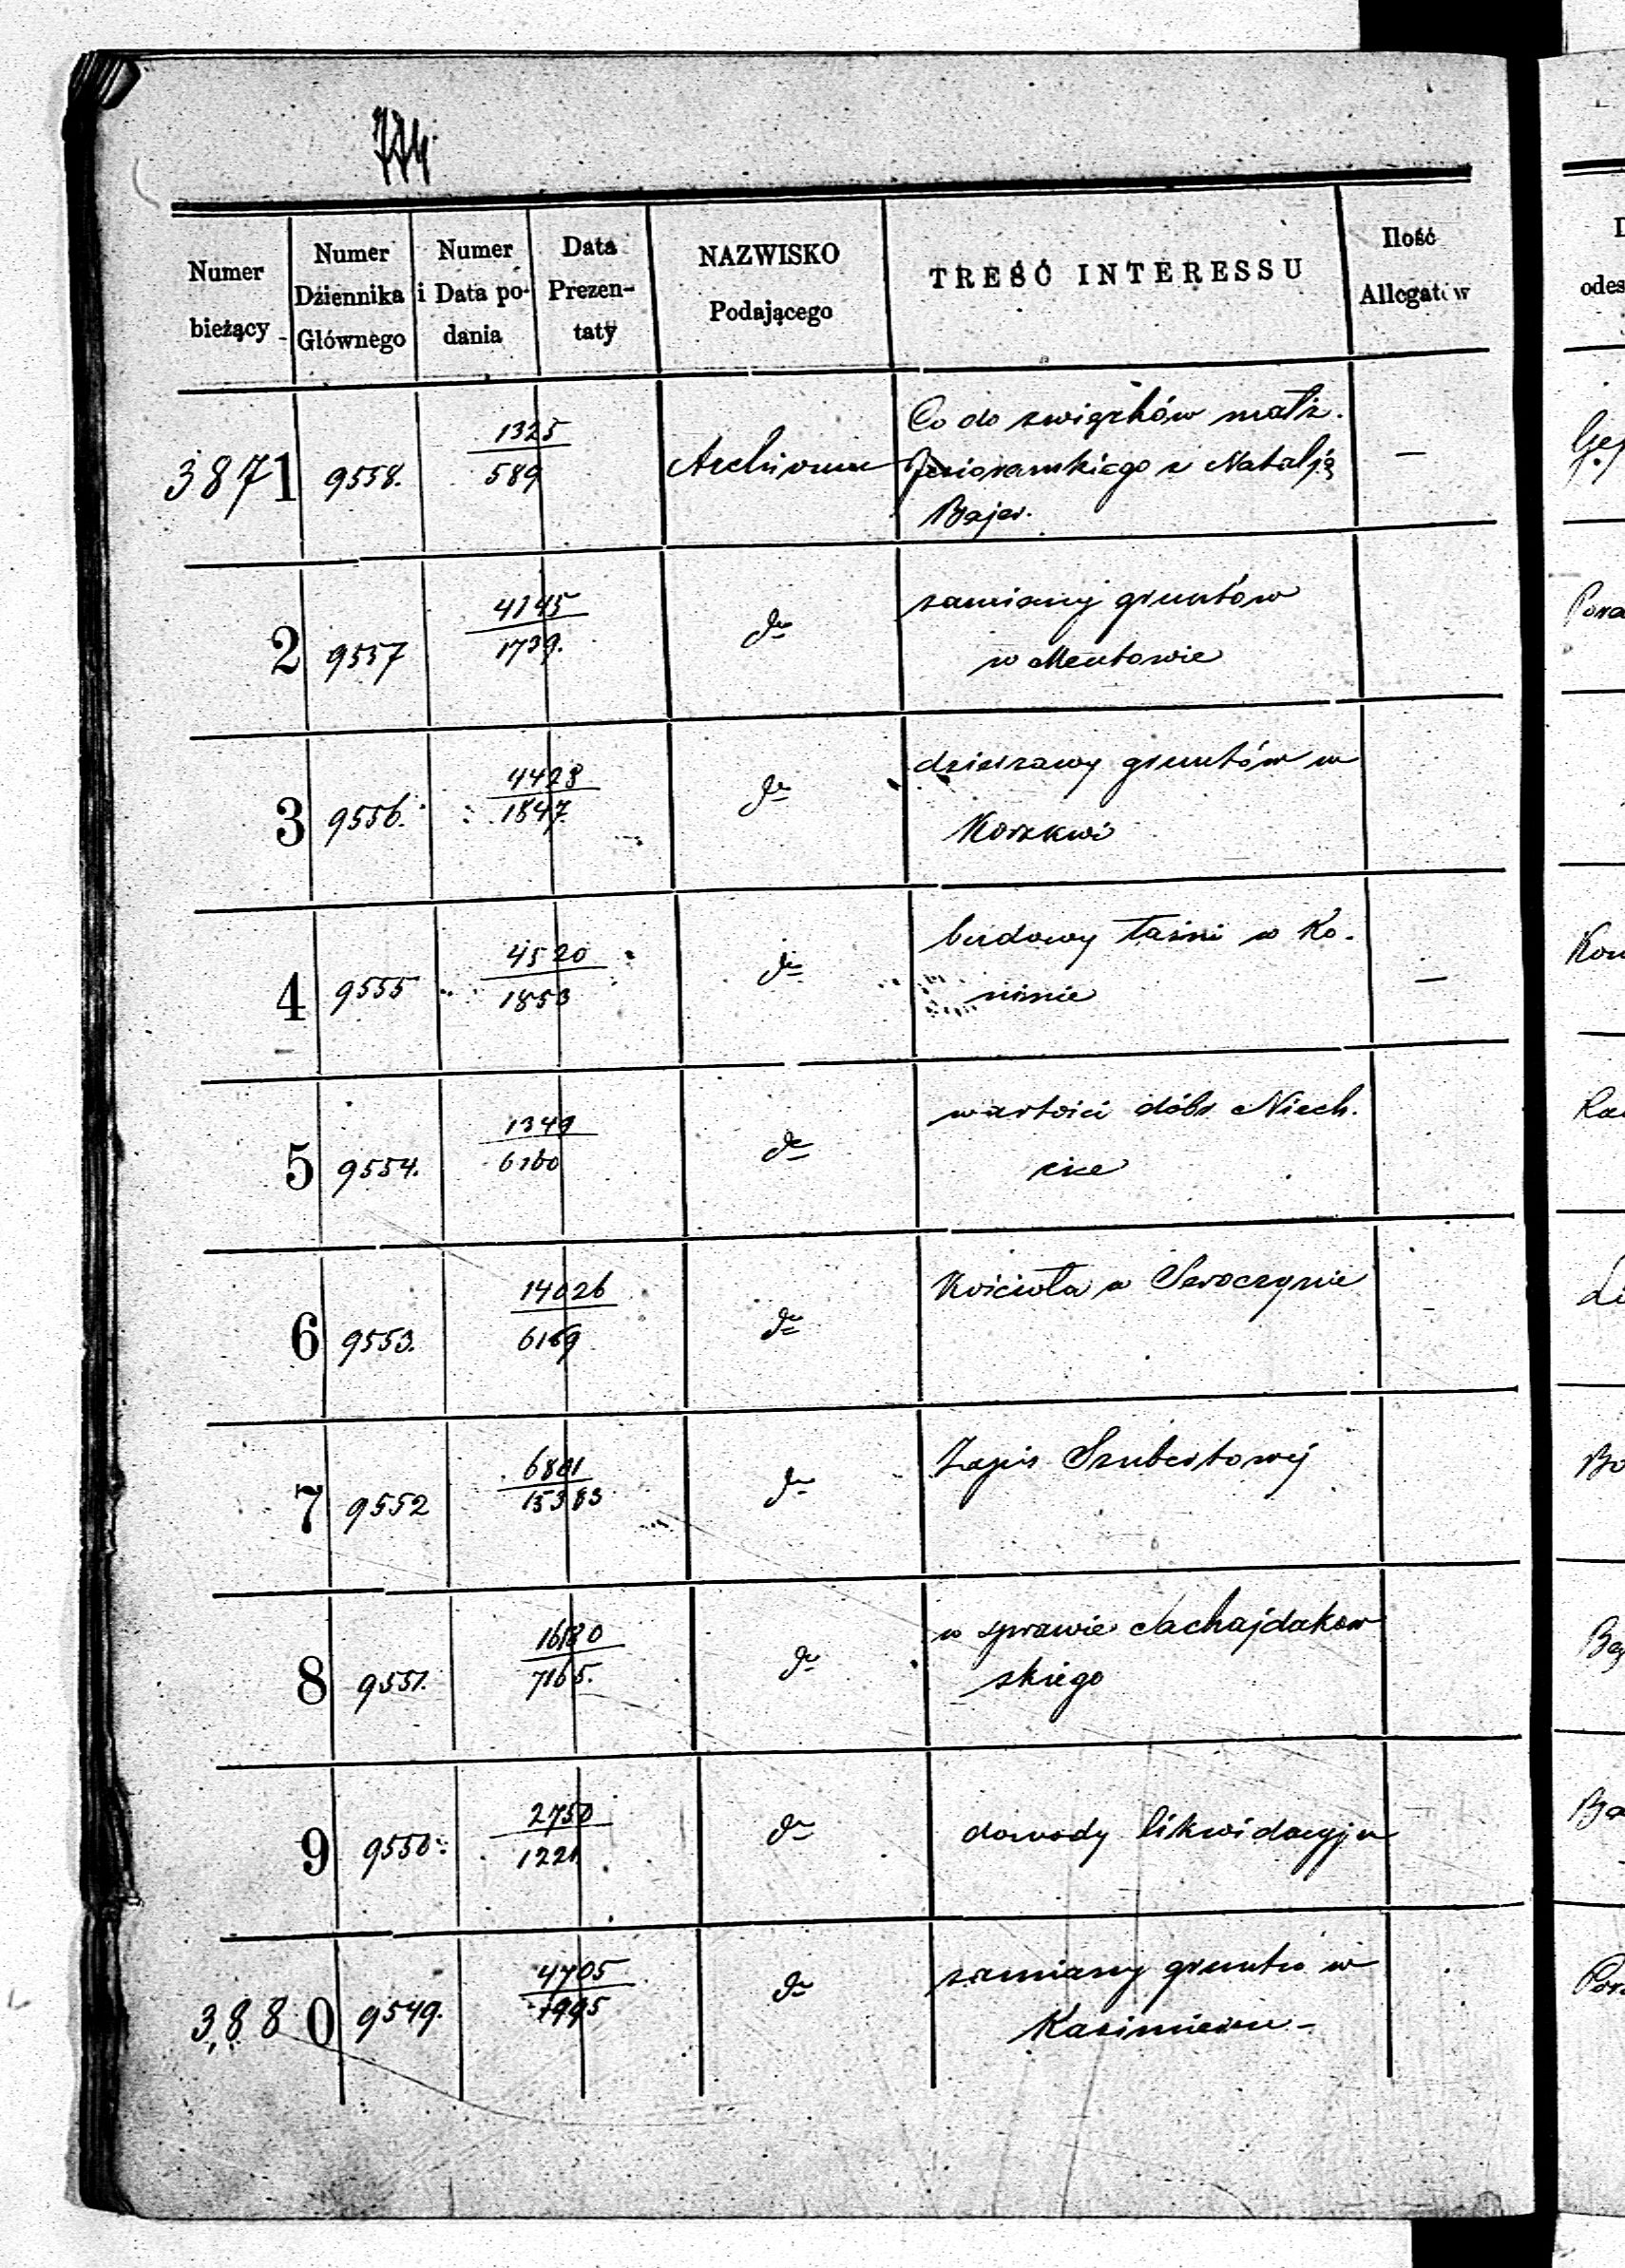 774.
Numer bieżący
Numer Dziennika Głównego
Numer i Data podania
Data Prezentaty
NAZWISKO Podającego
TREŚĆ INTERESSU
Ilość Allegatów
3871 9558. 1325/589 Archiwum Co do związków małż. —
Jezioranskiego z Natalją
Bajer.
2 9557 4145/1739. do zamiany gruntów
w Mentowie
3 9556. 4428/1847. do dzierzawy gruntów w
Korzkwi
4 9555 4520/1853 do budowy łaźni w Ko- —
ninie
5 9554. 1349/6160 do wartości dóbr Niech-
cice
6 9553. 14026/6169 do Kościoła w Seroczynie
7 9552 6801/15383 do Zapis Szubertowej
8 9551. 16180/7165. do w sprawie Sachajdakow
skiego
9 9550. 2750/1221. do dowody likwidacyjn
3880 9549. 4705/1995 do zamiany gruntu w
Kazimierzu -